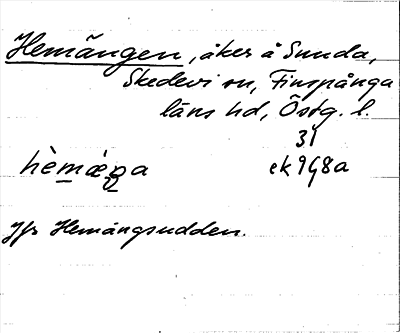 Hemängen, åker å Sunda,
Skedevi sn, Finspånga
läns hd, Östg. l.
31
ek 9G8a
Jfr Hemängsudden.